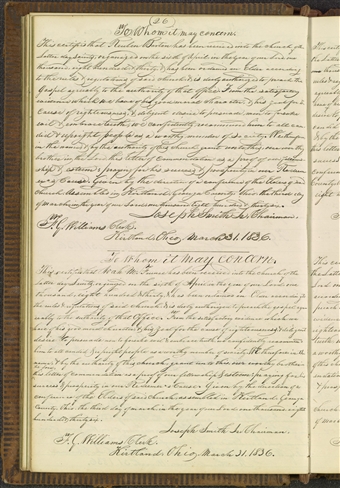 (26)
To Whom it may concern
This certifies that Reuben Barton has been received into the church of the
latter day saints, organized on the sixth of April in the year of our Lord one
thousand eight hundred & thirty, & has been ordained an Elder according
to the rules & regulations of said church, & is duly authorized to preach the
Gospel agreeably to the authority of that office. From the satisfactory
evidence which we have of his good moral character, & his zeal for the
cause of righteousness, & diligent desire to persuade men to forsake
evil, & embrace truth, we confidently recommend him to all can
did & upright people as a worthy member of society. We therefore
in the name, & by the authority of this church grant unto this, our worthy
brother in the Lord, this letter of commendation as a proof of our fellow
ship & esteem:
Given by the direction of a conference of the Elders of said
church assembled in Kirtland, Geauga County, Ohio, the third day
of March in the year of our Lord one thousand eight hundred & thirty six.
Joseph Smith Jr Chairman.
F. G. Williams Clerk.
Kirtland, Ohio, March 31, 1836.
To Whom it may concern.
This certifies that
M. has been received into the church of the
latter day saints, organized on the sixth of April in the year of our Lord one
thousand eight hundred & thirty, & has been ordained an Elder according to
the rules & regulations of said church, & is duly authorized to preach the gospel agree
ably to the authority of that office. From the satisfactory evidence which we
have of his good moral character, & his zeal for the cause of righteousness, & diligent
desire to persuade men to forsake evil & embrace truth, we confidently recommend
him to all candid & upright people as a worthy member of society. We therefore in the
name, & by the authority of this church grant unto this, our worthy brother
this letter of commendation as a proof of our fellowship & esteem:
success & prosperity in our Redeemer's cause. Given by the direction of a
conference of the Elders of said church assembled in Kirtland, Geauga
County, Ohio, the third day of March in the year of our Lord one thousand eight
hundred & thirty six.
Joseph Smith Jr Chairman.
F. G. Williams Clerk.
Kirtland, Ohio, March 31, 1836.